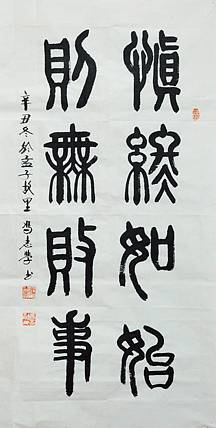 慎終如始
則無敗事
辛丑冬於孟子故里